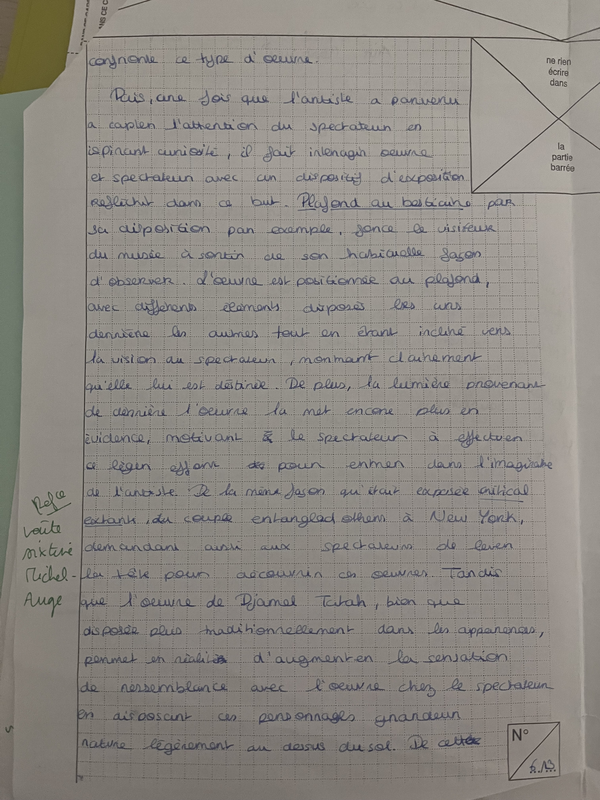 confronte ce type d'oeuvre.
ne rien
écrire
dans
la
partie
barrée
Puis, une fois que l'artiste a parvenu
a capter l'attention du spectateur en
ispirant curiosité, il fait interragir oeuvre
et spectateur avec un dispositif d'exposition
reflechit dans ce but. Plafond au bestiaire par
sa disposition par exemple, force le visiteur
du musée à sortir de son habituelle façon
d'observer. L'oeuvre est positionnée au plafond,
avec différents élements disposés les uns
derrière les autres tout en étant incliné vers
la vision du spectateur, montrant clairement
qu'elle lui est déstinée. De plus, la lumière provenant
de derrière l'oeuvre la met encore plus en
évidence, motivant le spectateur à effectuer
ce léger effort pour entrer dans l'imaginaire
de l'artiste. De la même façon qu'était exposée critical
extants, du couple entanglad othens à New York,
demandant aussi aux spectateurs de lever
la tête pour découvrir ces oeuvres. Tandis
que l'oeuvre de Djamel Tatah, bien que
disposée plus traditionnellement dans les apparences,
permet en réalité d'augmenter la sensation
de ressemblance avec l'oeuvre chez le spectateur
en disposant ces personnages grandeur
nature légèrement au dessus du sol. De cette
voûte
sixtine
Michel-
Ange
N°